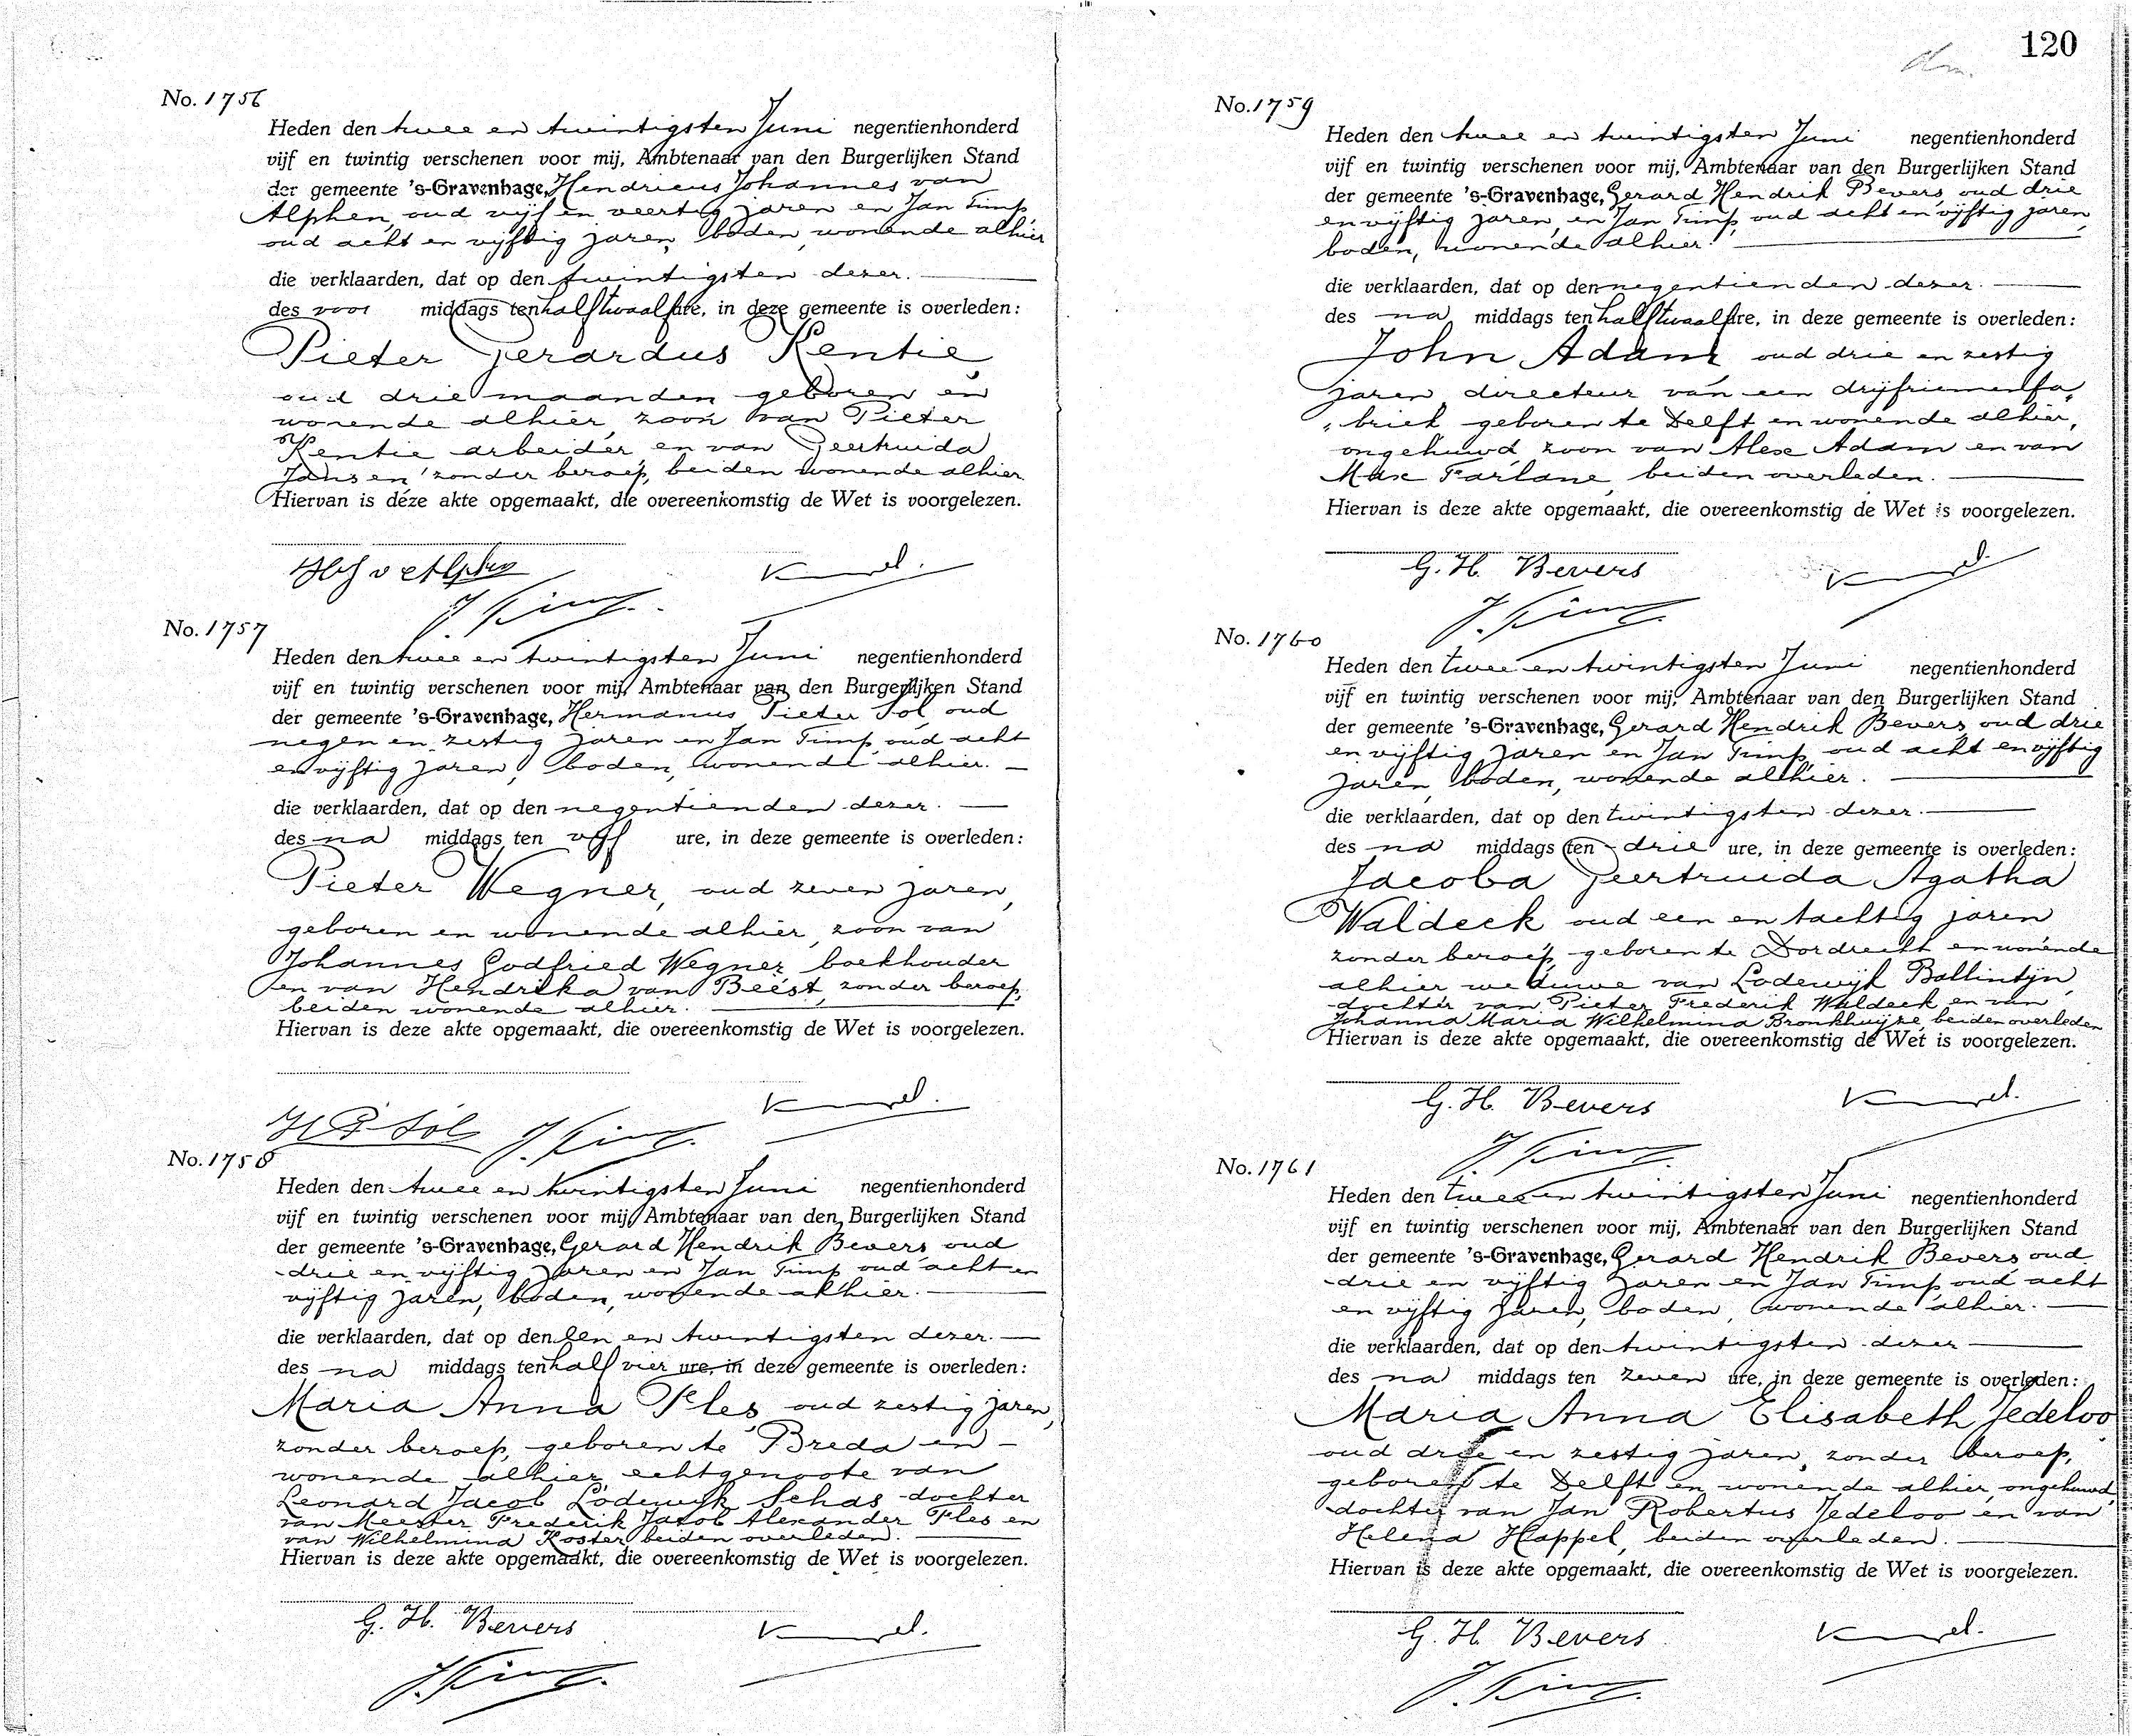 No. 1756
Heden den twee en twintigsten Juni negentienhonderd
vijf en twintig verschenen voor mij, Ambtenaar van den Burgerlijken Stand
der gemeente 's-Gravenhage, Hendricus Johannes van
Alphen, oud vijf en veertig jaren en Jan Timp,
oud acht en vijftig jaren, boden, wonende alhier
die verklaarden, dat op den twintigsten dezer.
des voor middags ten half twaalf ure, in deze gemeente is overleden:
Pieter Gerardus Kentie,
oud drie maanden geboren en
wonende alhier, zoon van Pieter
Kentie arbeider en van Geertruida
Jansen, zonder beroep, beiden wonende alhier.
Hiervan is deze akte opgemaakt, die overeenkomstig de Wet is voorgelezen.
HJ v Alphen
J. Timp.
No. 1757
Heden den twee en twintigsten Juni negentienhonderd
vijf en twintig verschenen voor mij, Ambtenaar van den Burgerlijken Stand
der gemeente 's-Gravenhage, Hermanus Pieter Sol, oud
negen en zestig jaren en Jan Timp, oud acht
en vijftig jaren, boden, wonende alhier.
die verklaarden, dat op den negentienden dezer.
des na middags ten vijf ure, in deze gemeente is overleden:
Pieter Wegner, oud zeven jaren,
geboren en wonende alhier, zoon van
Johannes Godfried Wegner, boekhouder
en van Hendrika van Beest, zonder beroep,
beiden wonende alhier.
Hiervan is deze akte opgemaakt, die overeenkomstig de Wet is voorgelezen.
H P Sol J. Timp.
No. 1758
Heden den twee en twintigsten Juni negentienhonderd
vijf en twintig verschenen voor mij, Ambtenaar van den Burgerlijken Stand
der gemeente 's-Gravenhage, Gerard Hendrik Bevers, oud
drie en vijftig jaren en Jan Timp, oud acht en
vijftig jaren, boden, wonende alhier.
die verklaarden, dat op den een en twintigsten dezer.
des na middags ten half vier ure, in deze gemeente is overleden:
Maria Anna Fles, oud zestig jaren,
zonder beroep, geboren te Breda en
wonende alhier, echtgenoote van
Leonard Jacob Lodewijk Schas, dochter
van Meester Frederik Jacob Alexander Fles en
van Wilhelmina Koster, beiden overleden.
Hiervan is deze akte opgemaakt, die overeenkomstig de Wet is voorgelezen.
G. H. Bevers
J. Timp.
120
No. 1759
Heden den twee en twintigsten Juni negentienhonderd
vijf en twintig verschenen voor mij, Ambtenaar van den Burgerlijken Stand
der gemeente 's-Gravenhage, Gerard Hendrik Bevers, oud drie
en vijftig jaren, en Jan Timp, oud acht en vijftig jaren,
boden, wonende alhier.
die verklaarden, dat op den negentienden dezer.
des na middags ten half twaalf ure, in deze gemeente is overleden:
John Adam, oud drie en zestig
jaren, directeur van een drijfriemenfa„
„briek, geboren te Delft en wonende alhier,
ongehuwd, zoon van Alex Adam en van
Max Farlane, beiden overleden.
Hiervan is deze akte opgemaakt, die overeenkomstig de Wet is voorgelezen.
G. H. Bevers
J. Timp.
No. 1760
Heden den twee en twintigsten Juni negentienhonderd
vijf en twintig verschenen voor mij, Ambtenaar van den Burgerlijken Stand
der gemeente 's-Gravenhage, Gerard Hendrik Bevers, oud drie
en vijftig jaren en Jan Timp, oud acht en vijftig
jaren, boden, wonende alhier.
die verklaarden, dat op den twintigsten dezer.
des na middags ten drie ure, in deze gemeente is overleden:
Jacoba Geertruida Agatha
Waldeck oud een en tachtig jaren
zonder beroep, geboren te Dordrecht en wonende
alhier weduwe van Lodewijk Ballintijn,
dochter van Pieter Frederik Waldeck en van
Johanna Maria Wilhelmina Bronkhuijze, beiden overleden
Hiervan is deze akte opgemaakt, die overeenkomstig de Wet is voorgelezen.
G. H. Bevers
J. Timp.
No. 1761
Heden den twee en twintigsten Juni negentienhonderd
vijf en twintig verschenen voor mij, Ambtenaar van den Burgerlijken Stand
der gemeente 's-Gravenhage, Gerard Hendrik Bevers, oud
drie en vijftig jaren en Jan Timp, oud acht
en vijftig jaren, boden, wonende alhier.
die verklaarden, dat op den twintigsten dezer
des na middags ten zeven ure, in deze gemeente is overleden:
Maria Anna Elisabeth Jedeloo
oud drie en zestig jaren, zonder beroep,
geboren te Delft en wonende alhier, ongehuwd,
dochter van Jan Robertus Jedeloo en van
Helena Happel, beiden overleden.
Hiervan is deze akte opgemaakt, die overeenkomstig de Wet is voorgelezen.
G. H. Bevers
J. Timp.